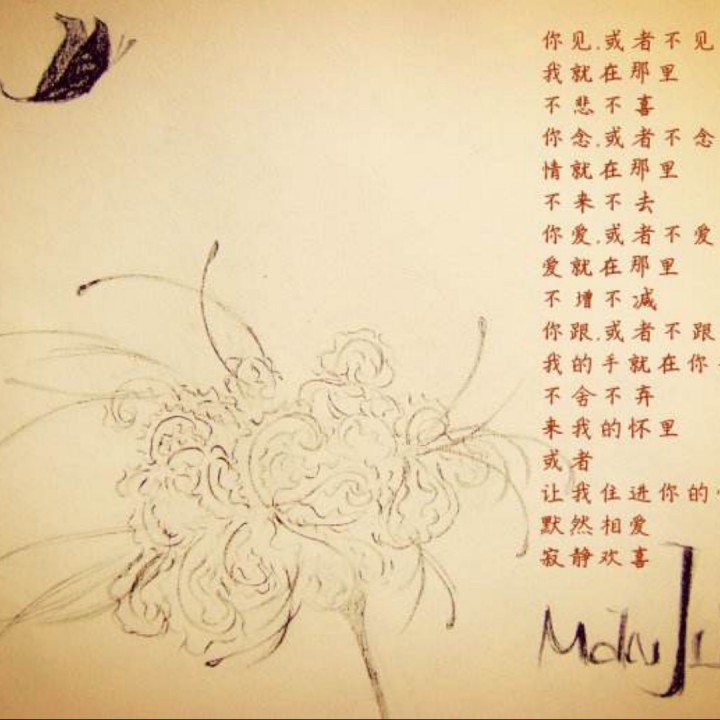 你见,或者不见
我就在那里
不悲不喜
你念,或者不念
情就在那里
不来不去
你爱,或者不爱
爱就在那里
不增不减
你跟,或者不跟
我的手就在你
不舍不弃
来我的怀里
或者
让我住进你的
默然相爱
寂静欢喜